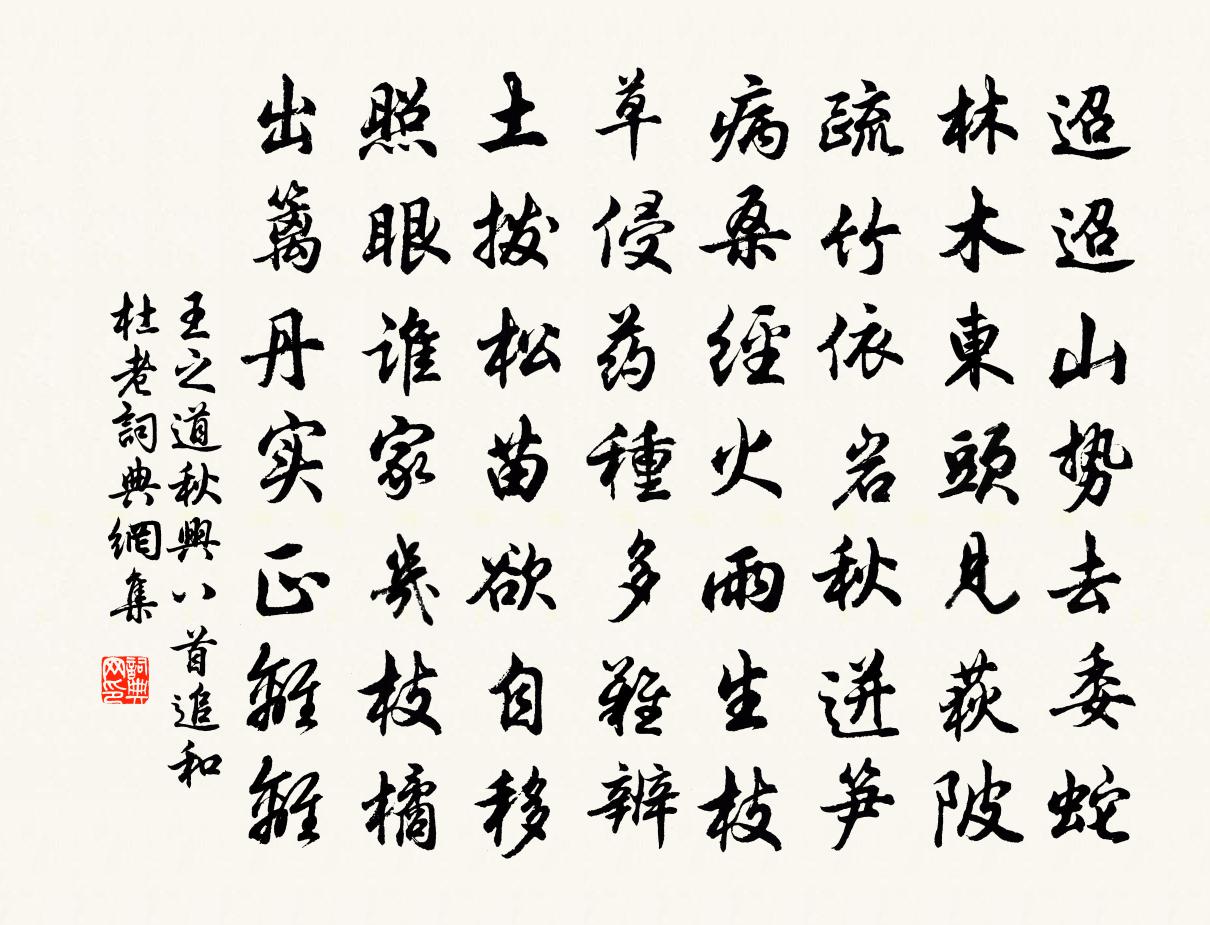 迢迢山勢去委蛇
林木東頭見萩陂
疏竹依岩秋迸笋
病桑經火雨生枝
草侵药種多難辨
土拨松苗欲自移
照眼谁家幾枝橘
出篱丹实正離離
王之道秋興八首追和
杜老詞典網集
詞典网印